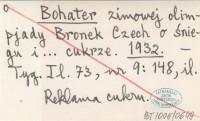 Bohater zimowej olim-
pjady Bronek Czech o śnie-
gu i... cukrze. 1932. —
Tyg. Il. 73, nr 9: 148, il.
Reklama cukru.